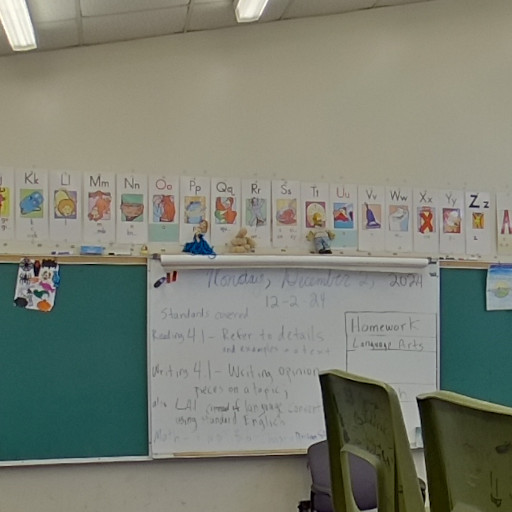 Kk
Ll
Mm
Nn
Oo
Pp
Qq
Rr
Ss
Tt
Uu
Vv
Ww
Xx
Yy
Zz
Monday, December 2, 2024
12-2-24
Standards covered
Reading 4.1 - Refer to details
and examples in a text
Writing 4.1 - Writing opinion
pieces on a topic,
LA1 command of language
using standard English
Math
Homework
Language Arts